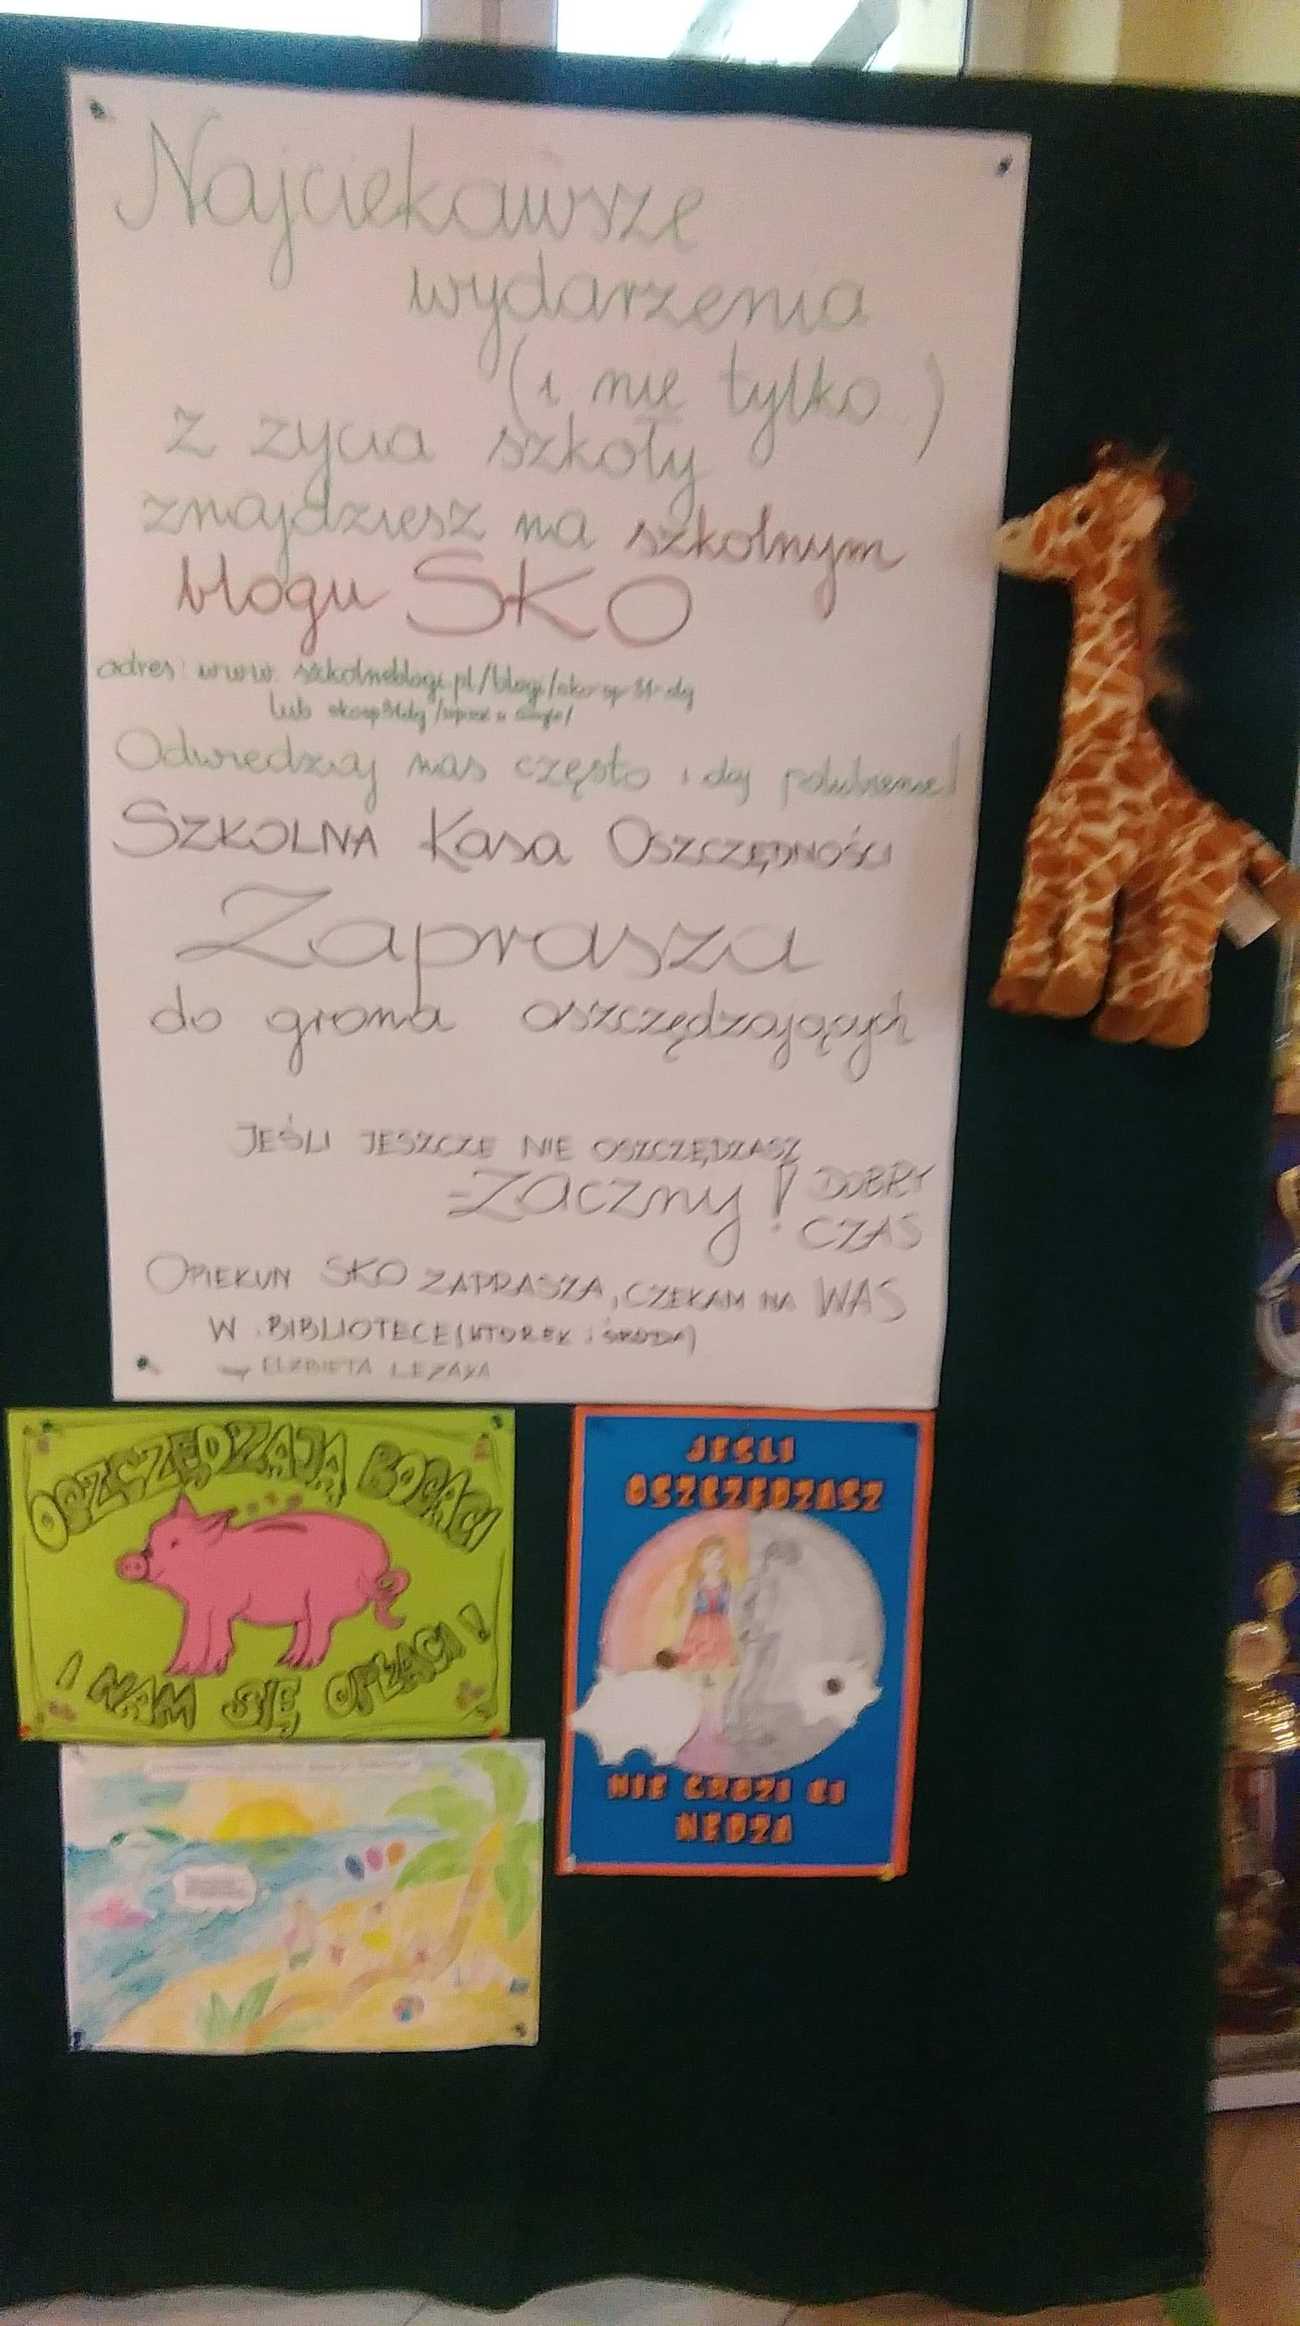 Najciekawsze
wydarzenia
(i nie tylko)
z życia szkoły
znajdziesz na szkolnym
blogu SKO
adres: www.szkolneblogi.pl/blogi/sko-sp-31-dg
lub skosp31dg /wpisz w Google/
Odwiedzaj nas często i daj polubienie!
SZKOLNA Kasa OSZCZĘDNOŚCI
Zaprasza
do grona oszczędzających
JEŚLI JESZCZE NIE OSZCZĘDZASZ
-Zaczny! DOBRY
CZAS
OPIEKUN SKO ZAPRASZA, CZEKAM NA WAS
W BIBLIOTECE (WTOREK i ŚRODA)
ELŻBIETA
OSZCZĘDZAJĄ BOGACI
I NAM SIĘ OPŁACI!
JEŚLI
OSZCZĘDZASZ
NIE GROZI CI
NĘDZA